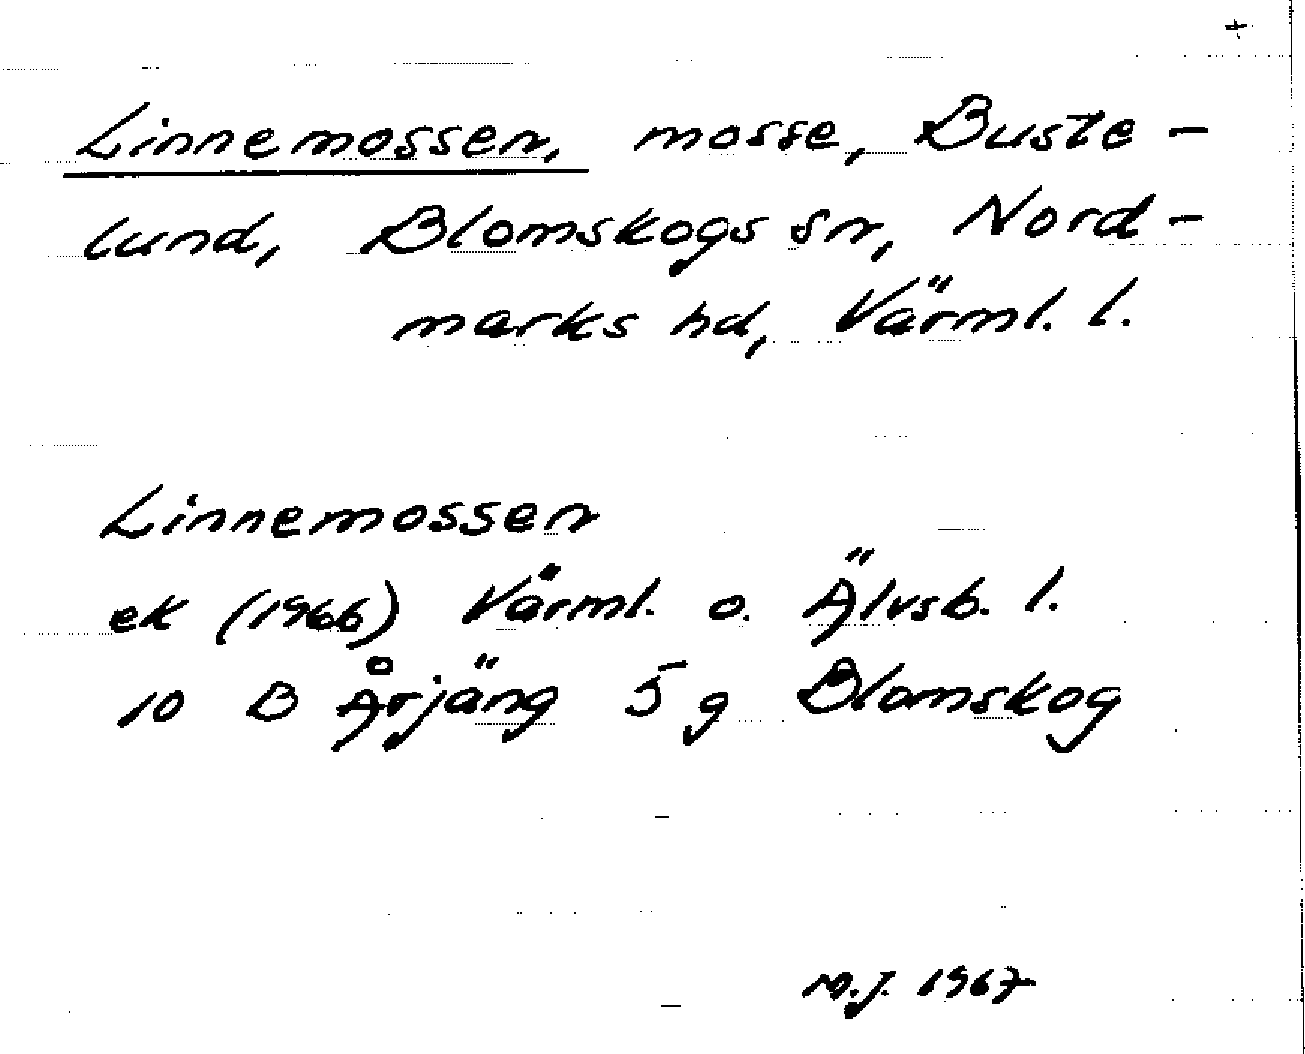 +
Linnemossen, mosse, Buste-
lund, Blomskogs sn, Nord-
marks hd, Värml. l.
Linnemossen
ek (1966) Värml. o. Älvsb. l.
10 B Årjäng 5 g Blomskog
M.J. 1967